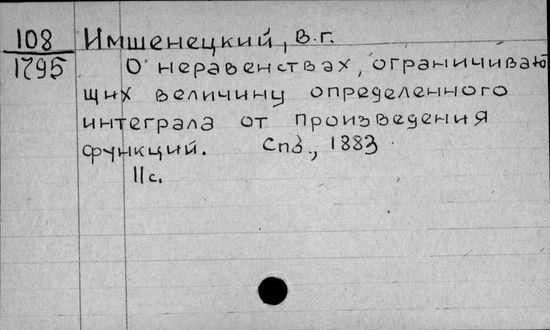 108 Имшенецкий, В.г.
1795 О неравенствах, ограничиваю
щих величину определенного
интеграла от произведения
функций. Спб., 1883
11с.